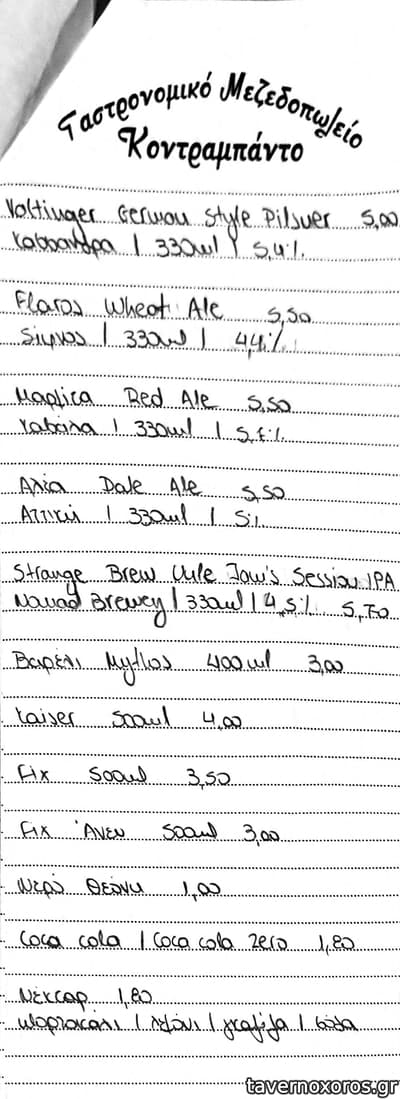 Γαστρονομικό Μεζεδοπωλείο
Κοντραμπάντο
Voltinger German Style Pilsner 5,00
Κασσάνδρα | 330ml | 5,4%
Flaros Wheat Ale 5,50
Sikinos | 330ml | 4,4%
Μαρμίτα Red Ale 5,50
Καβάλα | 330ml |
Αλία Pale Ale 5,50
Αττική | 330ml | 5%
Strange Brew Session IPA
Nomad Brewery | 330ml | 4,5% 5,70
Βαρέλι Mythos 400ml 3,00
Kaiser 500ml 4,00
Fix 500ml 3,50
Fix Άνευ 500ml 3,00
Νερό Θεόνη 1,00
Coca cola | Coca cola zero 1,80
Νέκταρ 1,80
Πορτοκάλι | λεμόνι | γκαζόζα | σόδα
tavernoxoros.gr